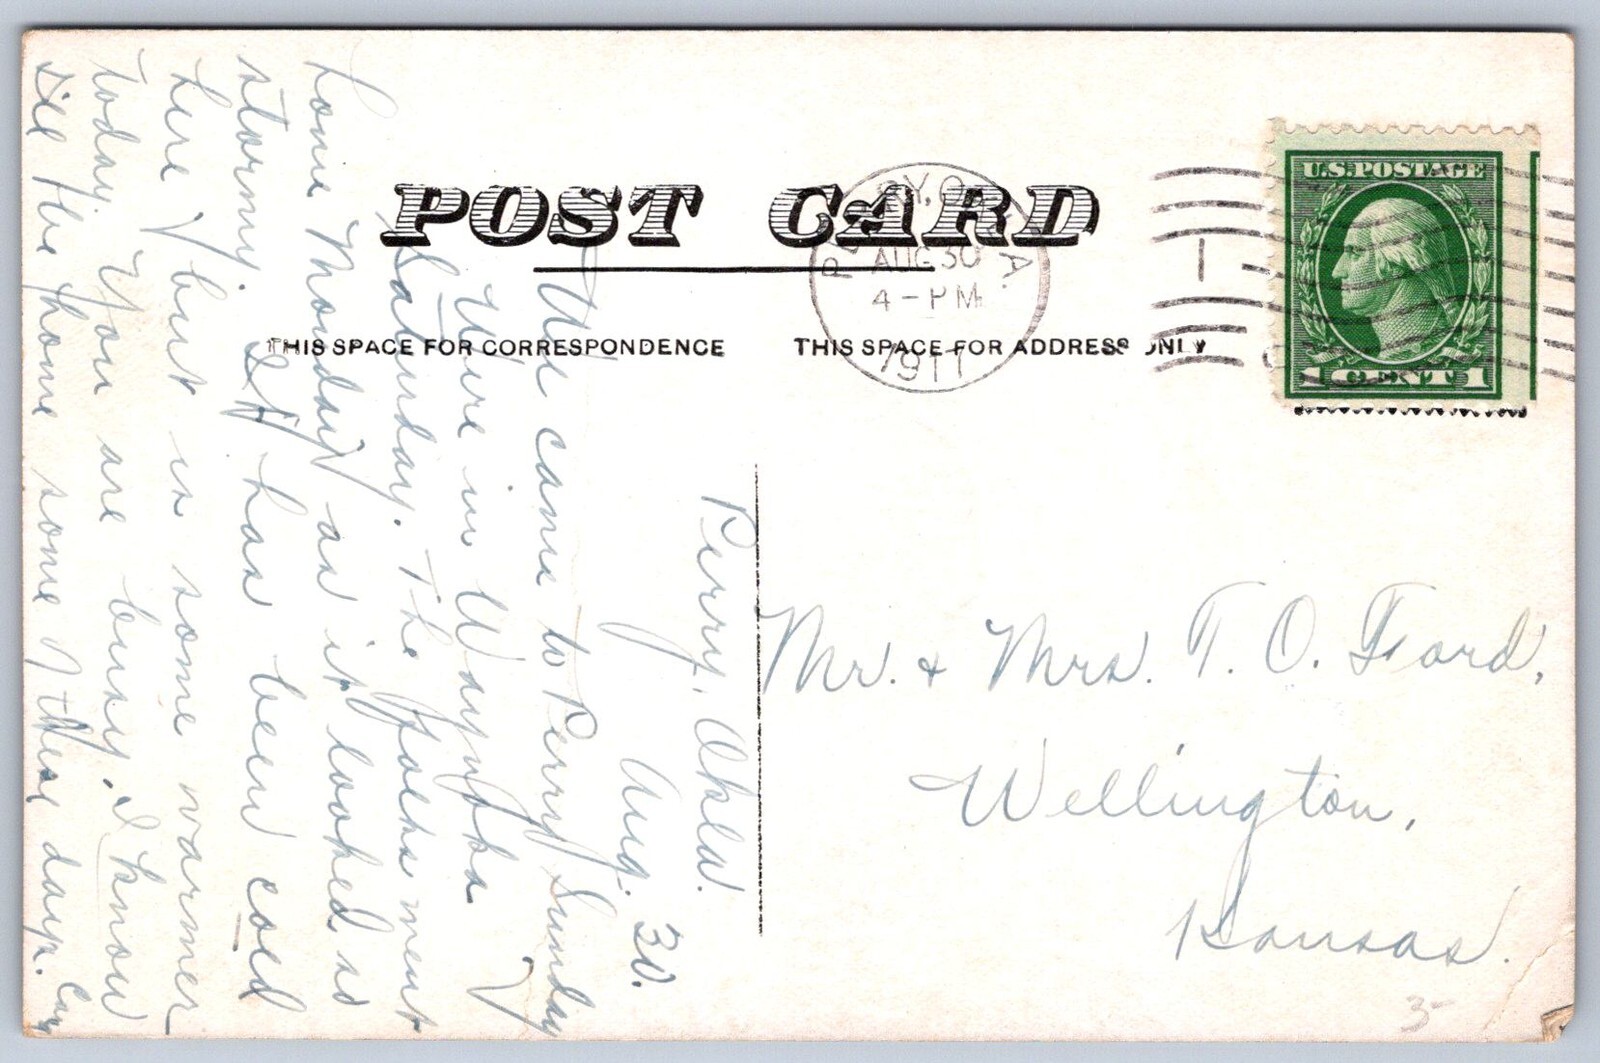 POST CARD
THIS SPACE FOR CORRESPONDENCE
THIS SPACE FOR ADDRESS ONLY
AUG 30
4-PM
1917
1
U.S. POSTAGE
1 CENT 1
Perry, Okla.
Aug. 30.
We came to Perry Sunday
Were in Waynoka
Saturday. The folks went
home Monday as it looked so
stormy. It has been cold
here but is some warmer
today. You are busy, I know
the home some of these days.
Mr. & Mrs. T. O. Ford,
Wellington,
Kansas.
3-